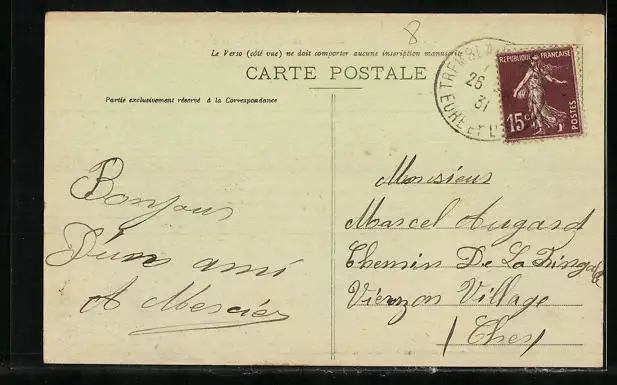 8
Le Verso (côté vue) ne doit comporter aucune inscription manuscrite
CARTE POSTALE
Partie exclusivement réservé à la Correspondance
RÉPUBLIQUE FRANÇAISE
15c
POSTES
TREMBLA
26
31
EURE ET L
Bonjour
D'un ami
A Mercier
Monsieur
Marcel Augard
Chemin De La
Vierzon Village
(Cher)